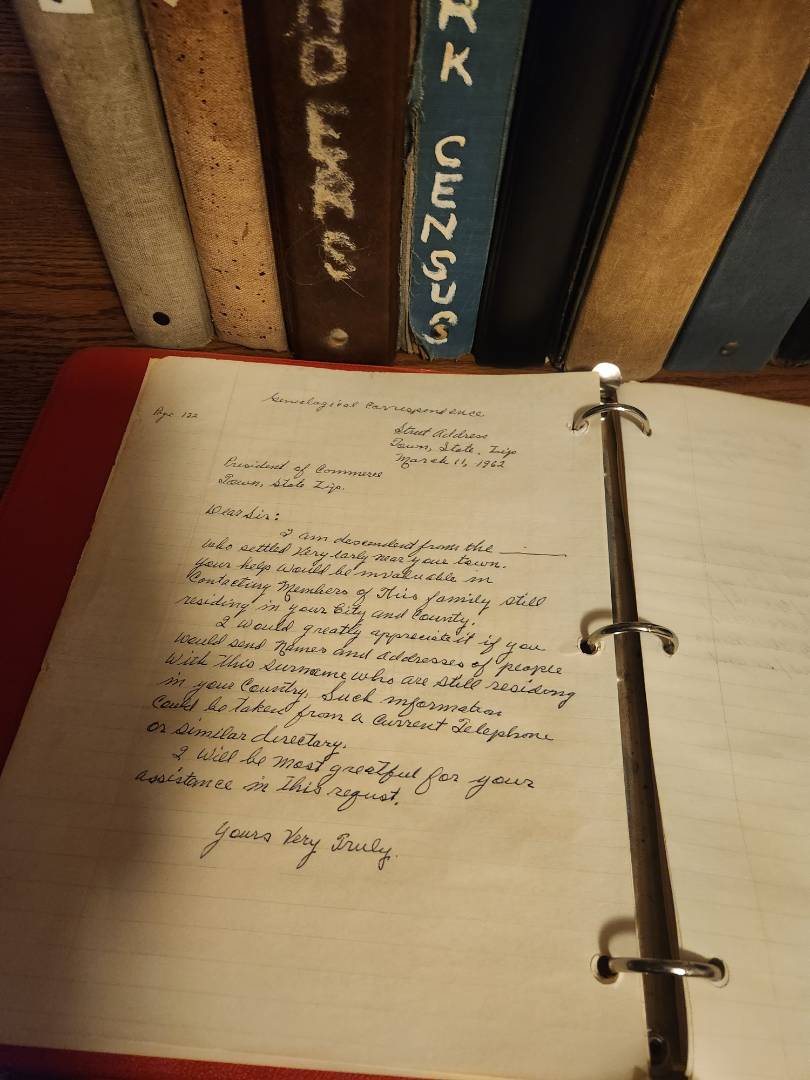 RK CENSUS
DERS
Genelogical Correspondence
Page 122
Street Address
Town, State, Zip
March 11, 1962
President of Commerce
Town, State Zip.
Dear Sir:
I am descendent from the ______
who settled Very Early near your town.
Your help Would be invaluable in
Contacting Members of This family still
residing in your City and County.
I Would greatly appreciate it if you
Would send Names and addresses of people
With This surname who are still residing
in your County. Such information
Could be taken from a Current Telephone
or similar directory.
I Will be Most greatful for your
assistance in This request.
Yours Very Truly.